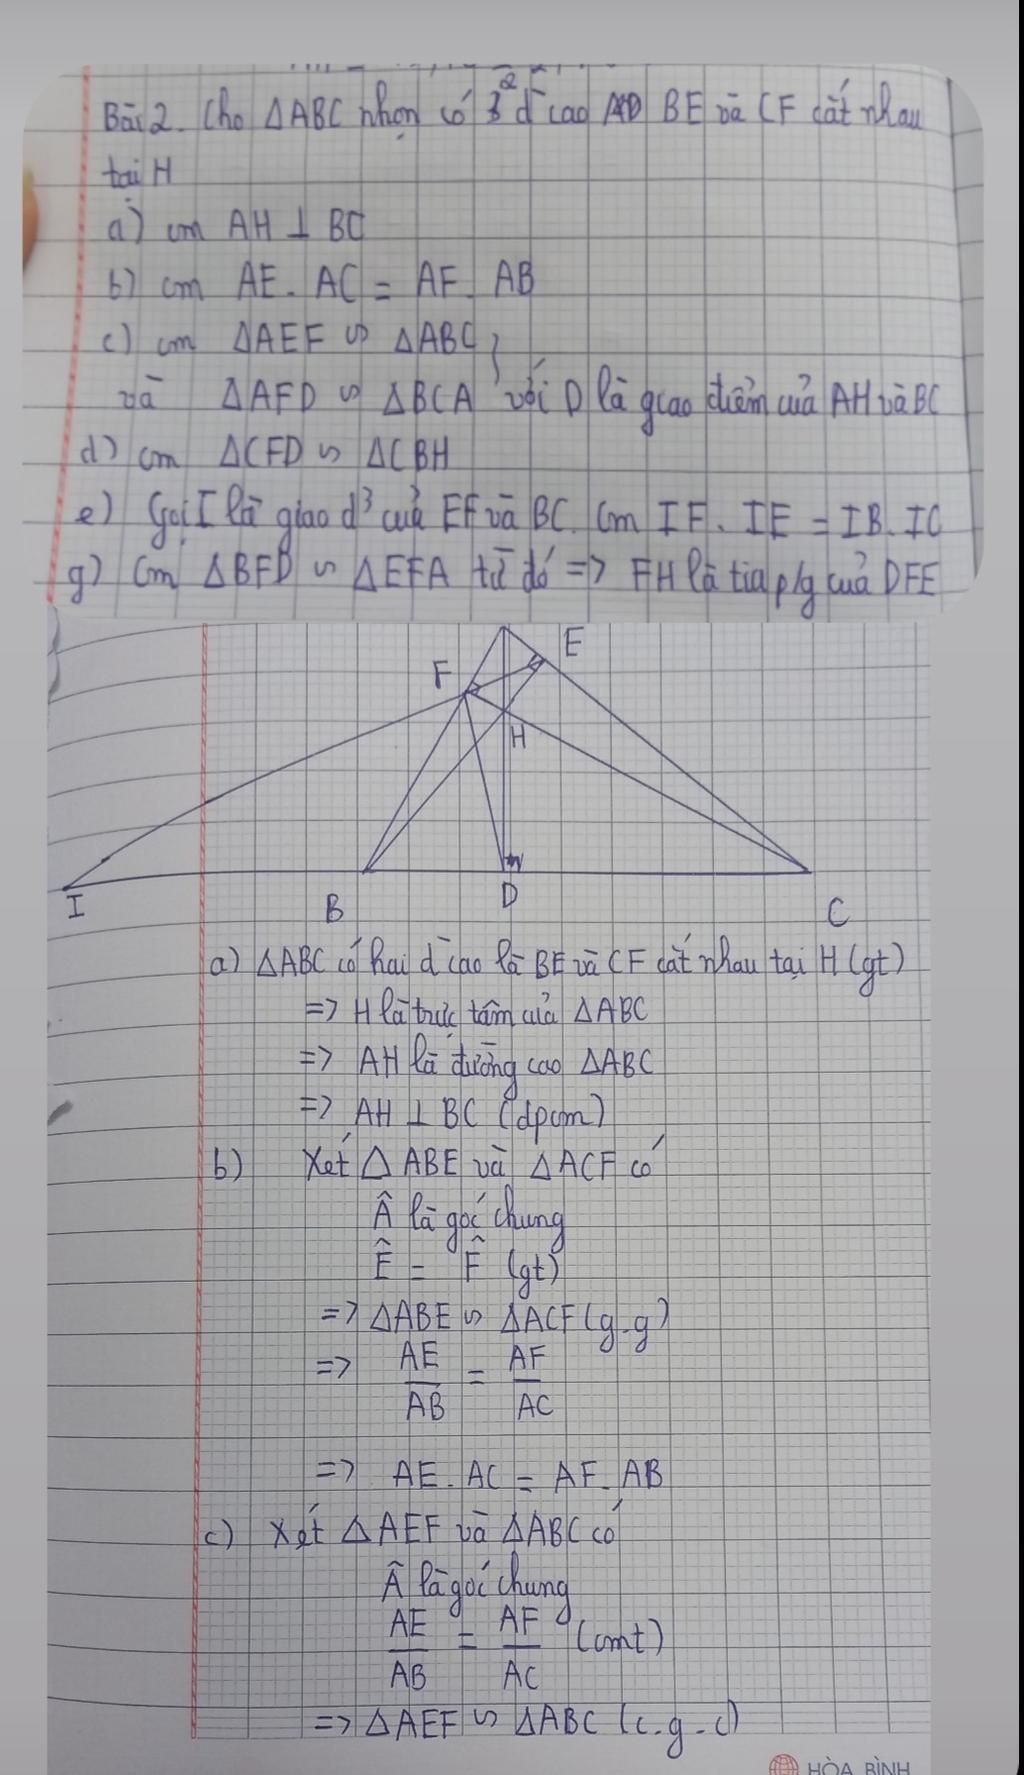 Bài 2. Cho ΔABC nhọn có 2 đ̄ cao BE và CF cắt nhau
tại H
a) cm AH ⊥ BC
b) cm AE. AC = AF. AB
c) cm ΔAEF ∽ ΔABC
và ΔAFD ∽ ΔBCA với D là giao điểm của AH và BC
d) cm ΔCFD ∽ ΔCBH
e) Gọi I là giao đ³ của EF và BC. Cm IF. IE = IB. IC
g) Cm ΔBFD ∽ ΔEFA từ đó => FH là tia p/g của DFE
E
F
H
I
B
D
C
a) ΔABC có hai đ̄ cao là BE và CF cắt nhau tại H (gt)
=> H là trực tâm của ΔABC
=> AH là đường cao ΔABC
=> AH ⊥ BC (đpcm)
b) Xét Δ ABE và ΔACF có
Â là góc chung
Ê = F̂ (gt)
=> ΔABE ∽ ΔACF (g.g)
=> AE/AB = AF/AC
=> AE. AC = AF. AB
c) Xét ΔAEF và ΔABC có
Â là góc chung
AE/AB = AF/AC (cmt)
=> ΔAEF ∽ ΔABC (c.g.c)
HÒA BÌNH